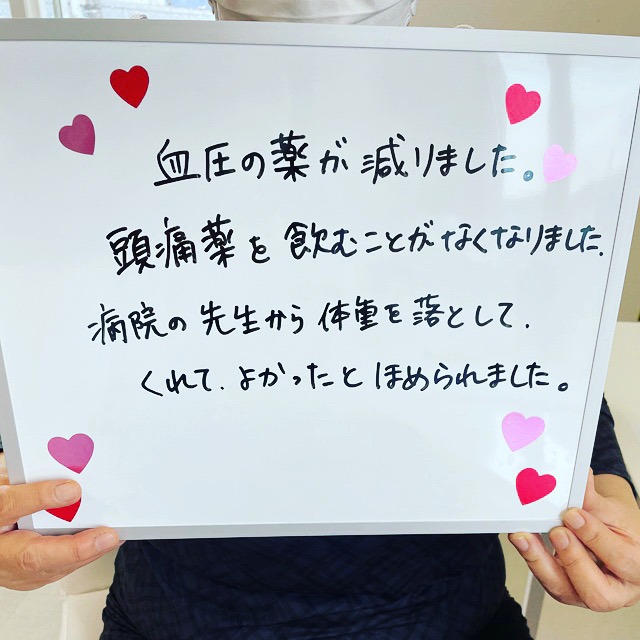 血圧の薬が減りました。
頭痛薬を飲むことがなくなりました.
病院の先生から体重を落として.
くれて.よかったとほめられました。